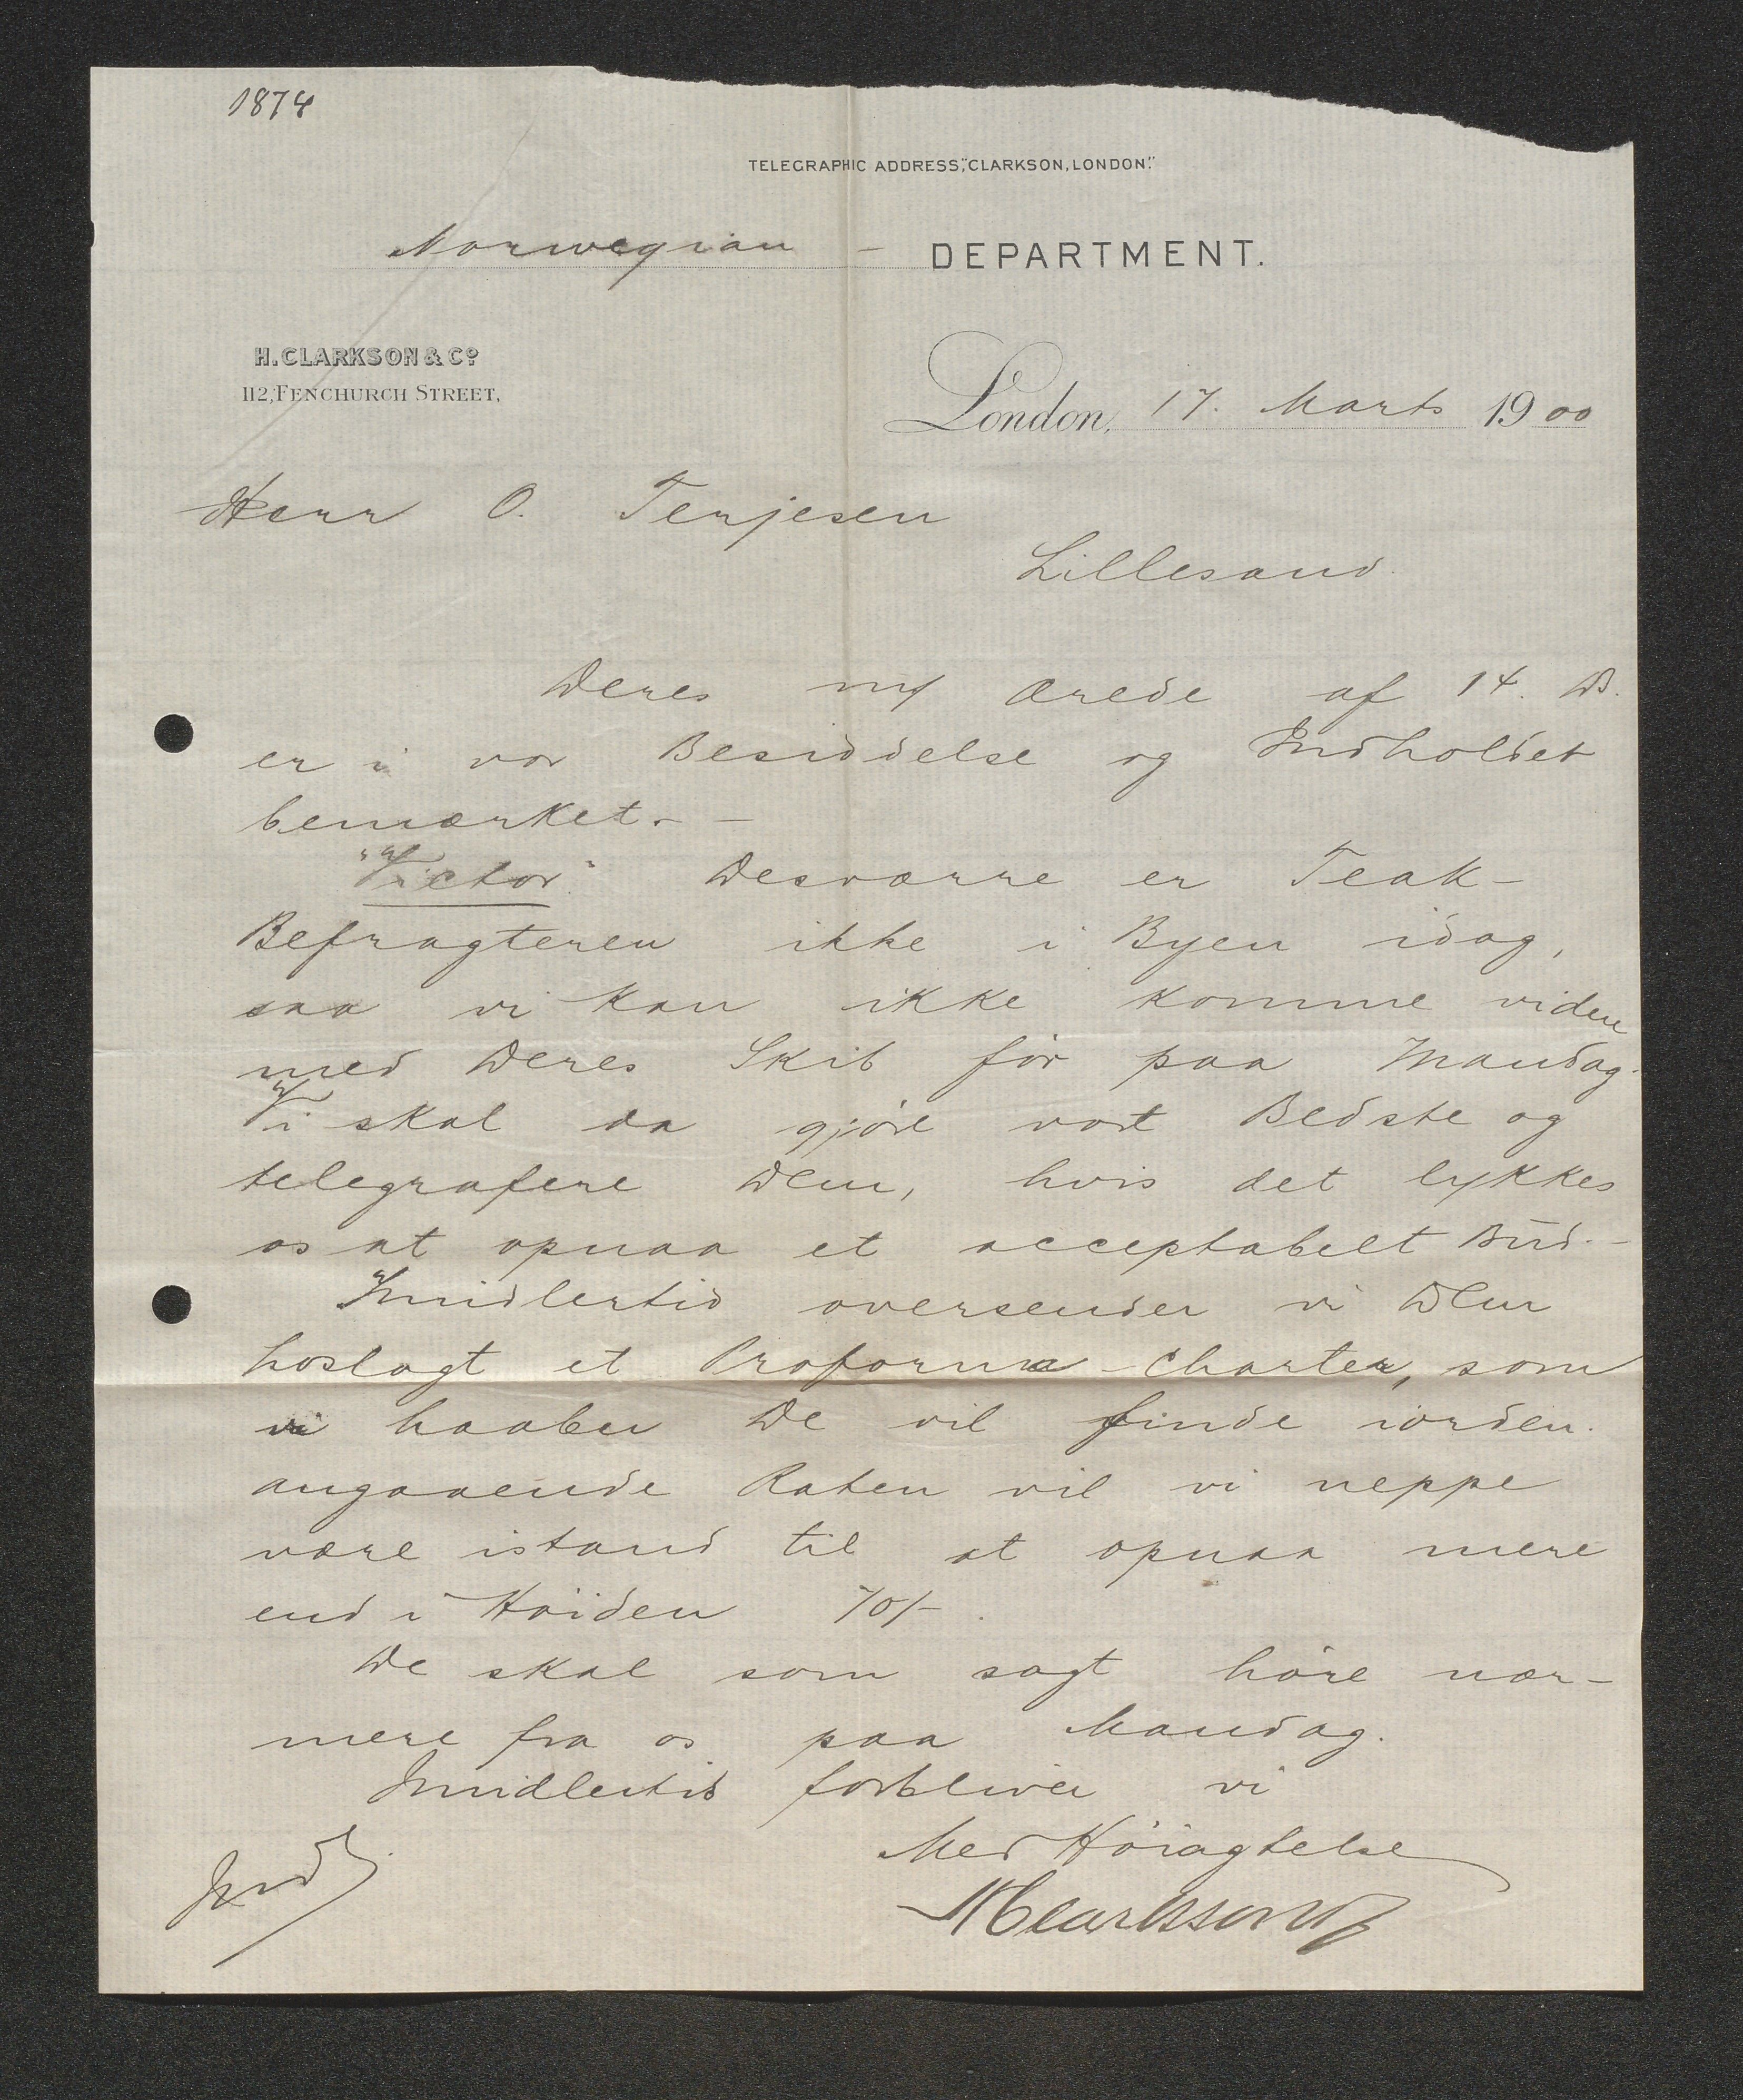 1874
TELEGRAPHIC ADDRESS, "CLARKSON, LONDON".
Norwegian - DEPARTMENT.
H. CLARKSON & Co
112, FENCHURCH STREET,
London, 17. Marts 1900
Herr O. Terjesen
Lillesand.
Deres ærede af 14. ds.
er i vor Besiddelse og Indholdet
bemærket. -
"Victor". Desværre er Teak-
Befragteren ikke i Byen idag,
saa vi kan ikke komme videre
med Deres Skib før paa Mandag.
Vi skal da gjøre vort Bedste og
telegrafere Dem, hvis det lykkes
os at opnaa et acceptabelt Bud. -
Imidlertid oversender vi Dem
hoslagt et Proforma-Charter, som
vi haaber De vil finde iorden.
angaaende Raten vil vi neppe
være istand til at opnaa mere
end i Høiden 70/-.
De skal som sagt høre nær-
mere fra os paa Mandag.
Imidlertid forbliver vi
Med Høiagtelse
HClarkson